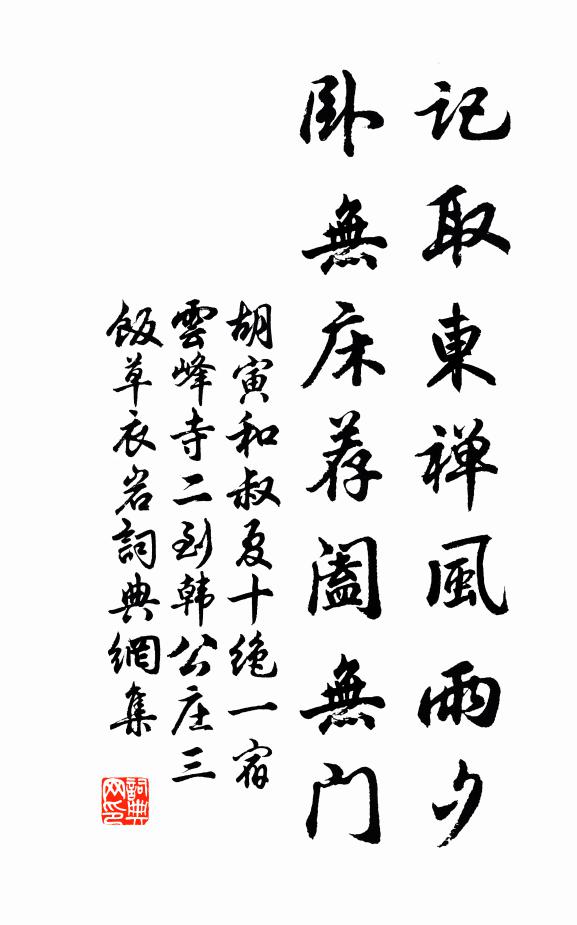 記取東禅風雨夕
卧無床荐阖無門
胡寅和叔夏十绝一宿
雲峰寺二到韩公庄三
飯草衣岩詞典網集
詞典
网印